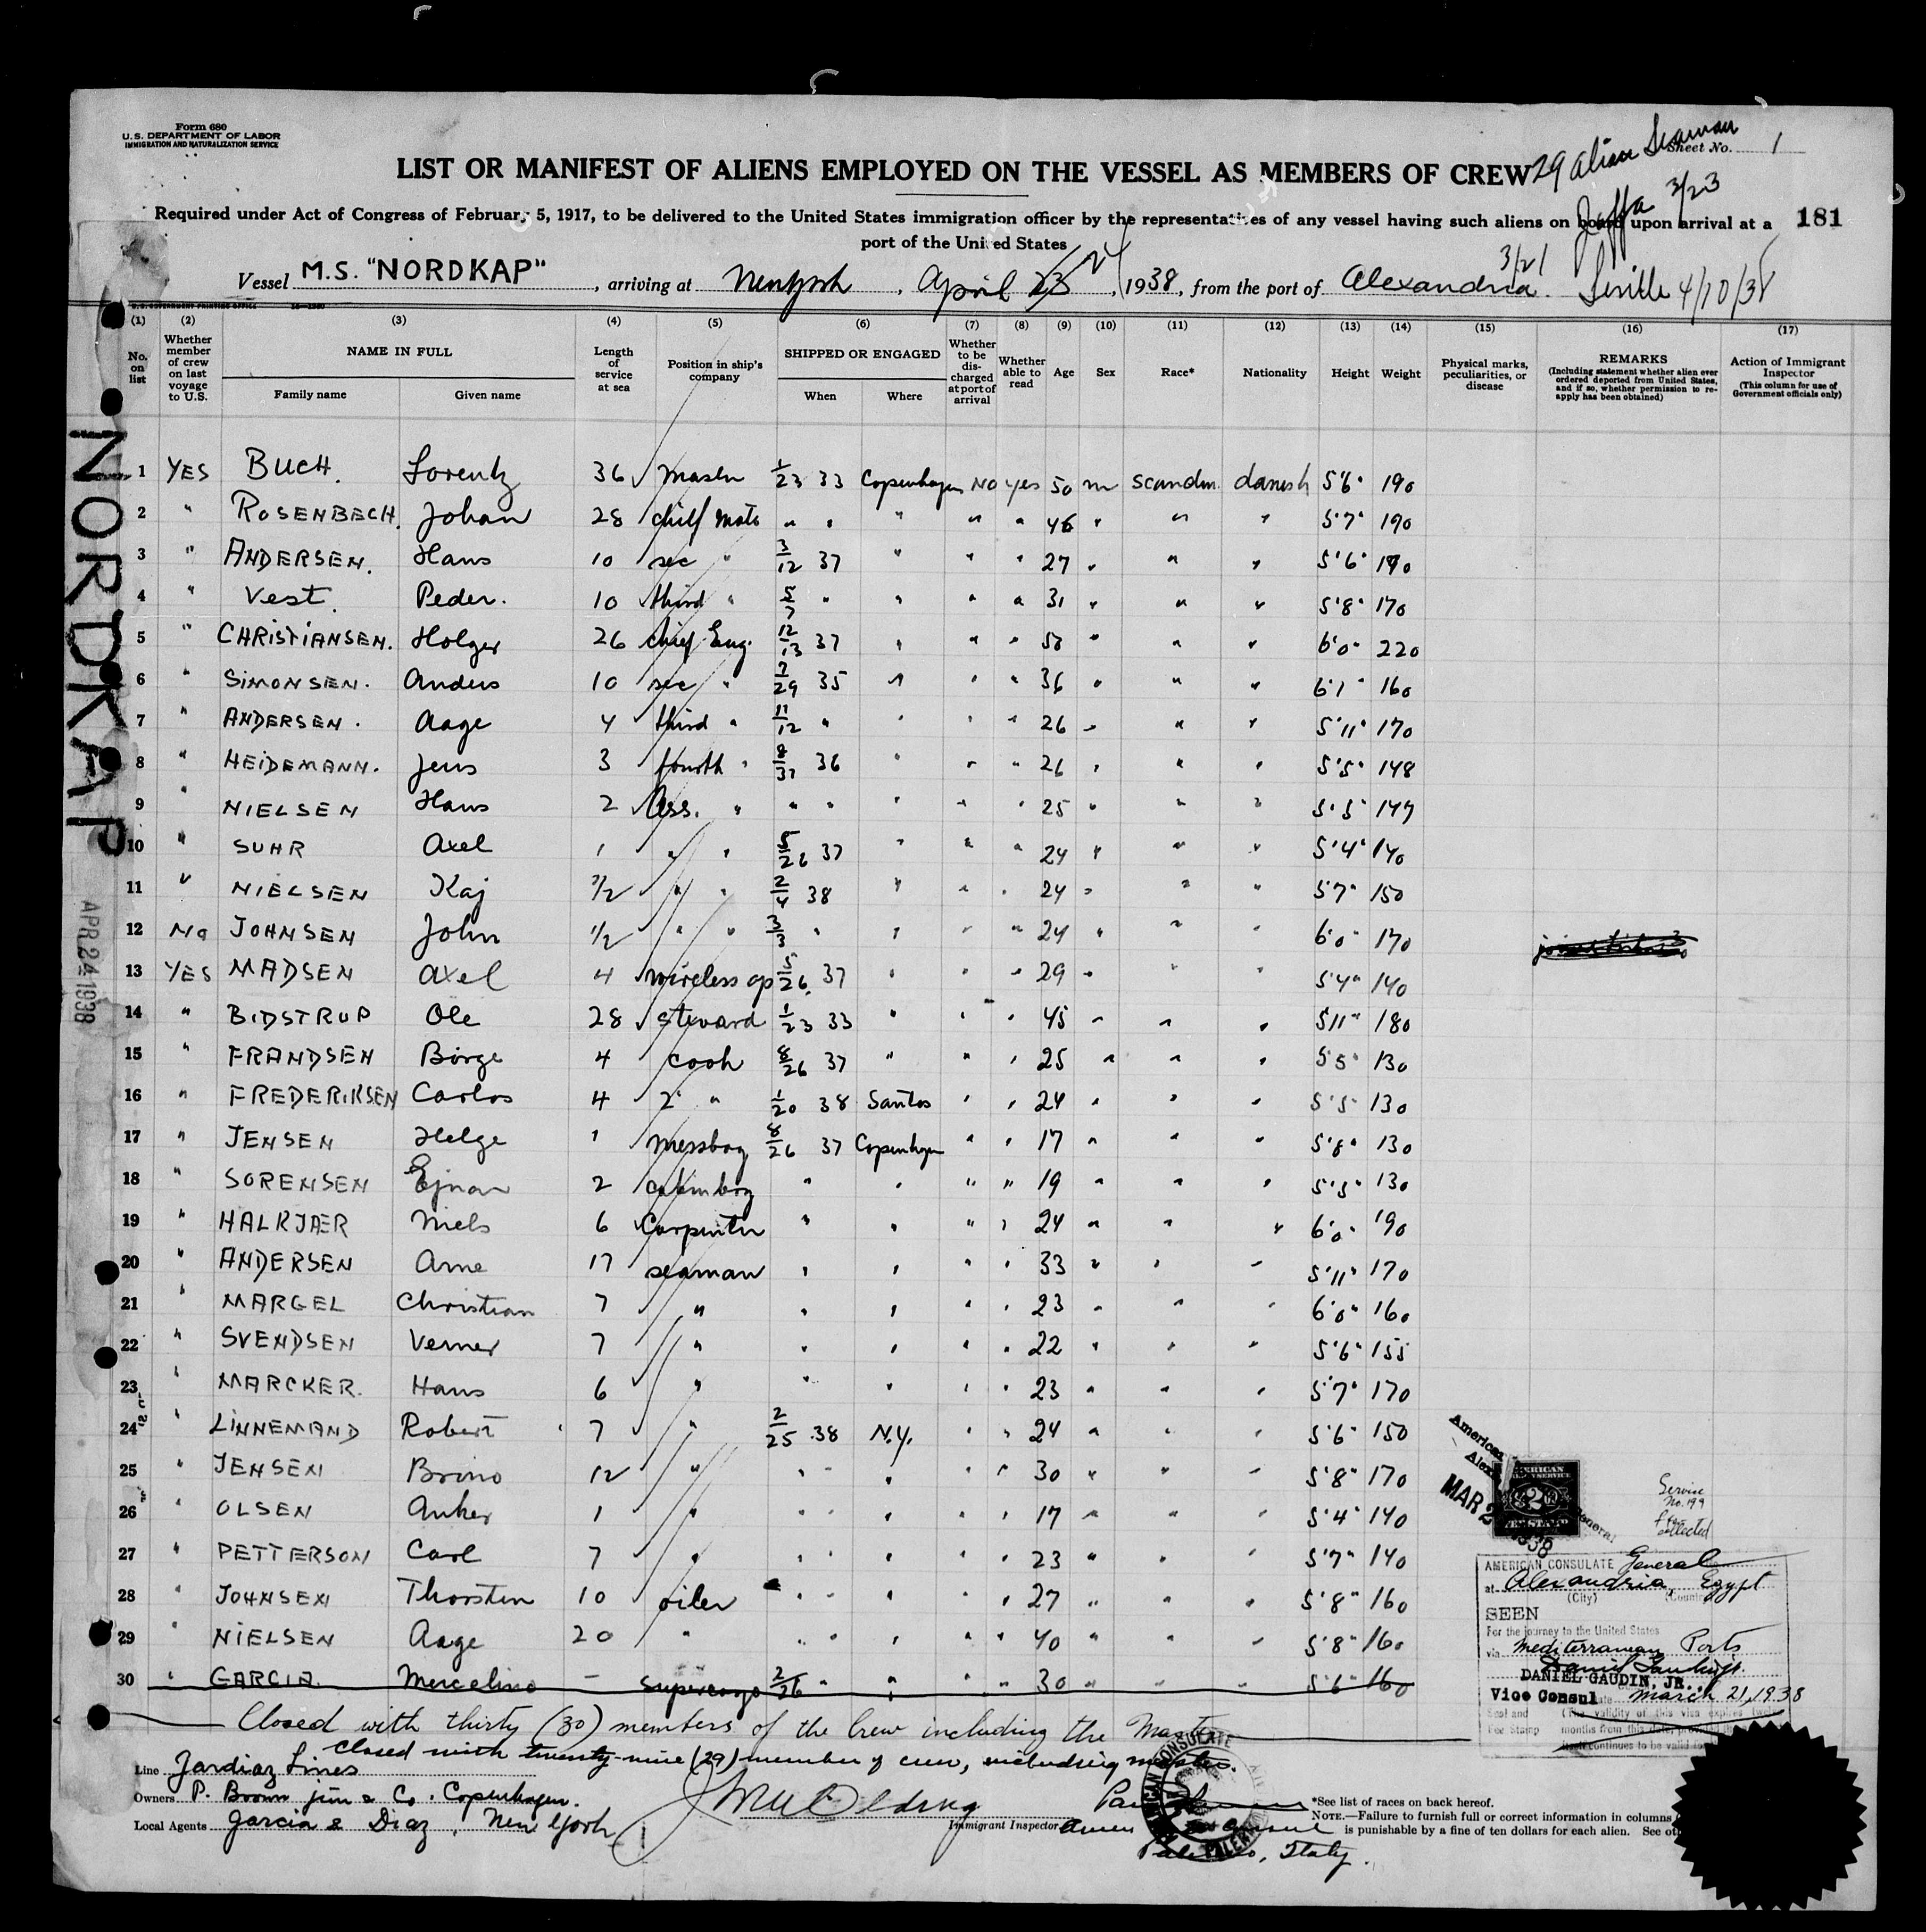 Form 680
U.S. DEPARTMENT OF LABOR
IMMIGRATION AND NATURALIZATION SERVICE
29 alien Seaman
Sheet No. 1
LIST OR MANIFEST OF ALIENS EMPLOYED ON THE VESSEL AS MEMBERS OF CREW
Jaffa 3/23
Required under Act of Congress of February 5, 1917, to be delivered to the United States immigration officer by the representatives of any vessel having such aliens on board upon arrival at a
181
port of the United States
Vessel M.S. "NORDKAP", arriving at Newyork, April 23 24, 1938, from the port of Alexandria. 3/21 Seville 4/10/38
U.S. GOVERNMENT PRINTING OFFICE
(1) (2) (3) (4) (5) (6) (7) (8) (9) (10) (11) (12) (13) (14) (15) (16) (17)
No. on list
Whether member of crew on last voyage to U.S.
NAME IN FULL
Family name
Given name
Length of service at sea
Position in ship's company
SHIPPED OR ENGAGED
When
Where
Whether to be discharged at port of arrival
Whether able to read
Age
Sex
Race*
Nationality
Height
Weight
Physical marks, peculiarities, or disease
REMARKS
(Including statement whether alien ever ordered deported from United States, and if so, whether permission to reapply has been obtained)
Action of Immigrant Inspector
(This column for use of Government officials only)
NORDKAP
APR 24 1938
1 YES BUCH. Lorentz 36 Master 1/23 33 Copenhagen NO yes 50 m scandin. danish 5'6" 190
2 " ROSENBECH. Johan 28 chief mate " " " " " 46 " " " 5'7" 190
3 " ANDERSEN. Hans 10 sec " 3/12 37 " " " 27 " " " 5'6" 190
4 " Vest. Peder. 10 third " 5/7 " " " " 31 " " " 5'8" 170
5 " CHRISTIANSEN. Holger 26 chief Eng. 12/13 37 " " " 50 " " " 6'0" 220
6 " SIMONSEN. Anders 10 sec " 7/29 35 " " " 36 " " " 6'1" 160
7 " ANDERSEN. Aage 4 third " 11/12 " " " " 26 " " " 5'11" 170
8 " HEIDEMANN. Jens 3 fourth " 8/31 36 " " " 26 " " " 5'5" 148
9 " NIELSEN Hans 2 Ass. " " " " " " 25 " " " 5'5" 149
10 " SUHR Axel 1 " " 5/26 37 " " " 24 " " " 5'4" 140
11 " NIELSEN Kaj 1/2 " " 2/4 38 " " " 24 " " " 5'7" 150
12 No JOHNSEN John 1/2 " " 3/3 " " " " 24 " " " 6'0" 170
13 YES MADSEN Axel 4 wireless op 5/26 37 " " " 29 " " " 5'4" 140
14 " BIDSTRUP Ole 28 steward 1/23 33 " " " 45 " " " 5'11" 180
15 " FRANDSEN Börge 4 cook 8/26 37 " " " 25 " " " 5'5" 130
16 " FREDERIKSEN Carlos 4 2" " 1/20 38 Santos " " 24 " " " 5'5" 130
17 " JENSEN Helge 1 messboy 8/26 37 Copenhagen " " 17 " " " 5'8" 130
18 " SORENSEN Ejnar 2 cabinboy " " " " 19 " " " 5'5" 130
19 " HALKJÆR Niels 6 Carpenter " " " " 24 " " " 6'0" 190
20 " ANDERSEN Arne 17 seaman " " " " 33 " " " 5'11" 170
21 " MARGEL Christian 7 " " " " " 23 " " " 6'0" 160
22 " SVENDSEN Verner 7 " " " " " 22 " " " 5'6" 155
23 " MARCKER. Hans 6 " " " " " 23 " " " 5'7" 170
24 " LINNEMAND Robert 7 " 2/25 38 N.Y. " " 24 " " " 5'6" 150
25 " JENSEN Bruno 12 " " " " " " 30 " " " 5'8" 170
26 " OLSEN Anker 1 " " " " " " 17 " " " 5'4" 140
27 " PETTERSON Carl 7 " " " " " " 23 " " " 5'7" 140
28 " JOHNSEN Thorsten 10 oiler " " " " " 27 " " " 5'8" 160
29 " NIELSEN Aage 20 " " " " " " 40 " " " 5'8" 160
30 " GARCIA. Mercelino — supercargo 2/26 " " " " 30 " " " 5'6" 160
Closed with thirty (30) members of the Crew including the Master
Closed with twenty-nine (29) member of crew, including master.
Line Jardiaz Lines
Owners P. Brown jun & Co. Copenhagen.
Local Agents Garcia & Diaz, New York
Immigrant Inspector
*See list of races on back hereof.
NOTE.—Failure to furnish full or correct information in columns
is punishable by a fine of ten dollars for each alien. See
Palermo, Italy.
American
MAR 2 1938
General
Service
No. 199
fee
collected
AMERICAN CONSULATE General
at Alexandria, Egypt
(City) (Country)
SEEN
For the journey to the United States
via Mediterranean Ports
DANIEL GAUDIN, JR.
Vice Consul Date March 21, 1938
Seal and
Fee Stamp
(The validity of this visa expires twelve
months from this date,
continues to be valid
AMERICAN CONSULATE
PALERMO